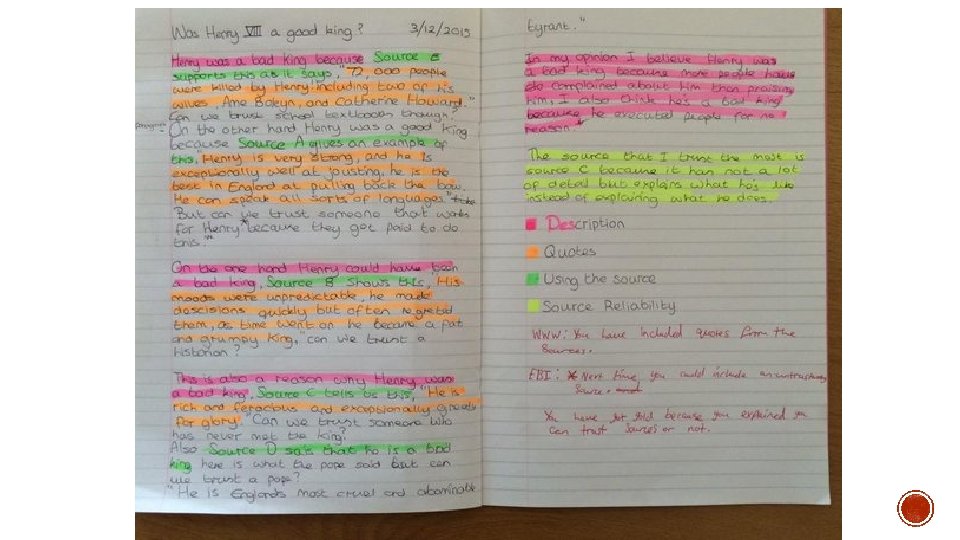 Was Henry VIII a good king? 3/12/2015
Henry was a bad king because Source E
supports this as it says, "72,000 people
were killed by Henry including two of his
wives, Ane Boleyn, and Catherine Howard."
Can we trust school textbooks though?
On the other hand Henry was a good king
because Source A gives an example of
this, "Henry is very strong, and he is
exceptionally well at jousting, he is the
best in England at pulling back the bow.
He can speak all sorts of languages"
But can we trust someone that works
for Henry because they get paid to do
this."
On the one hand Henry could have been
a bad king, Source B shows this, His
moods were unpredictable, he made
descisions quickly but often regreted
them, as time went on he became a fat
and grumpy king," can we trust a
historian?
This is also a reason why Henry was
a bad king, Source C tells us this, "He is
rich and ferocious and exceptionally greedy
for glory." Can we trust someone who
has never met the king?
Also Source D sais that he is a bad
king here is what the pope said but can
we trust a pope?
"He is Englands most cruel and abominable
tyrant."
In my opinion I believe Henry was
a bad king because more people have
complained about him than praising
him, I also think he's a bad king
because he executed people for no
reason.
The source that I trust the most is
source C because it has not a lot
of detail but explains what he's like
instead of explaining what he does.
Description
Quotes
Using the source
Source Reliability
WWW: You have included quotes from the
sources.
EBI: Next time you could include
source.
You have got gold because you explained you
can trust sources or not.